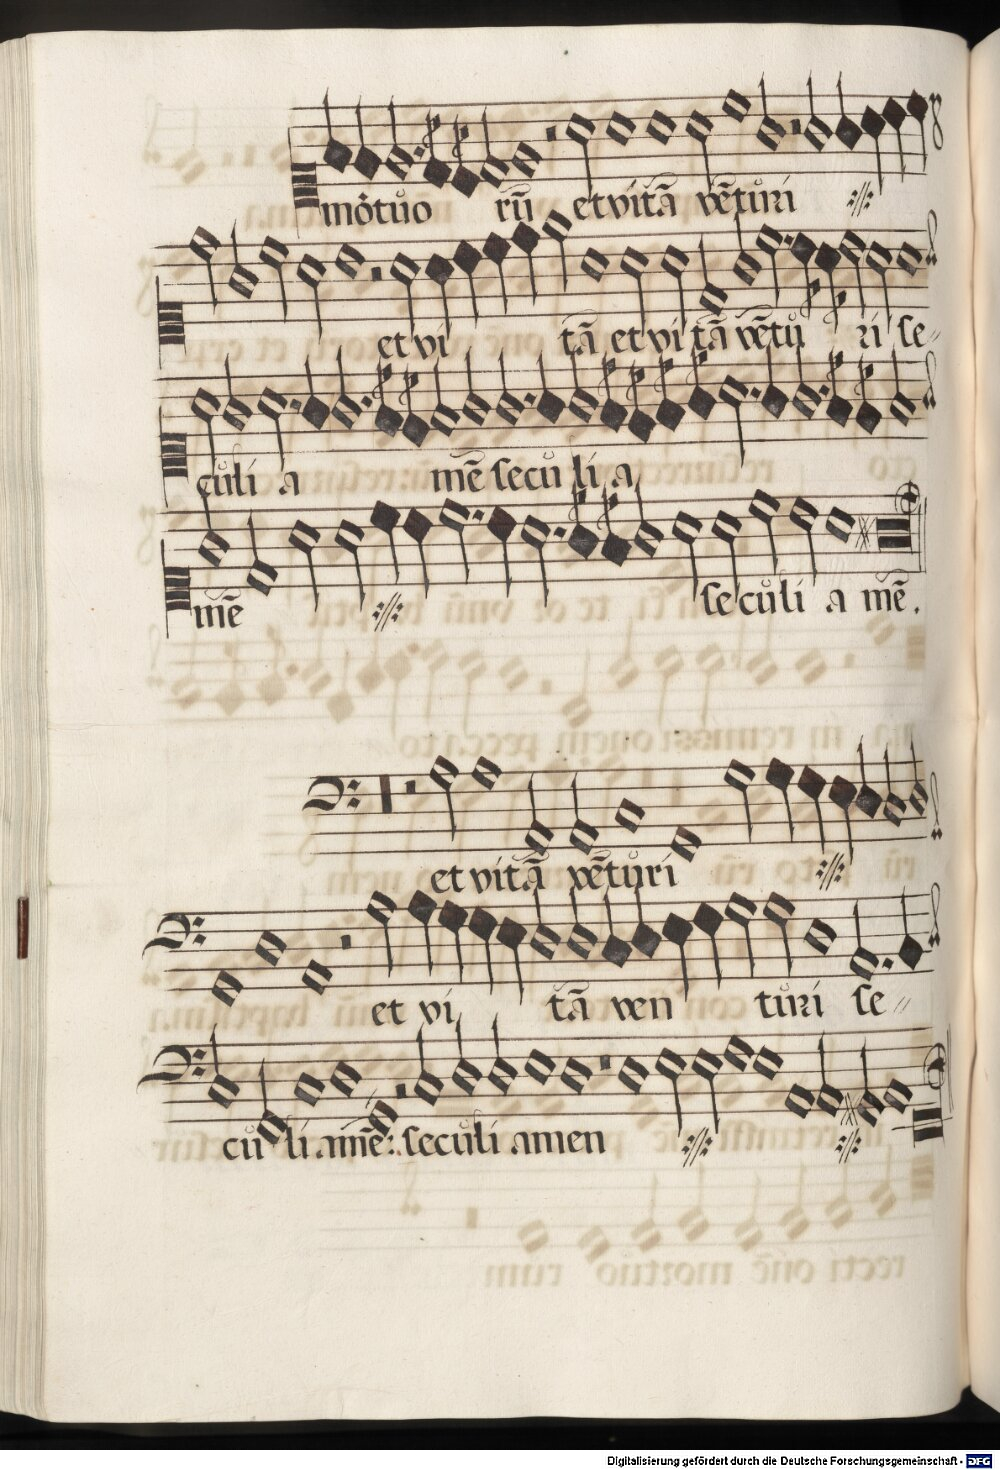 mōtuo rū et vitā vētùri
et vi tā et vi tā vētù ri se-
cùli a mē secù li a
mē secùli a mē.
et vitā vētùri
et vi tā ven tùri se-
cù li amē: secùli amen
Digitalisierung gefördert durch die Deutsche Forschungsgemeinschaft - DFG